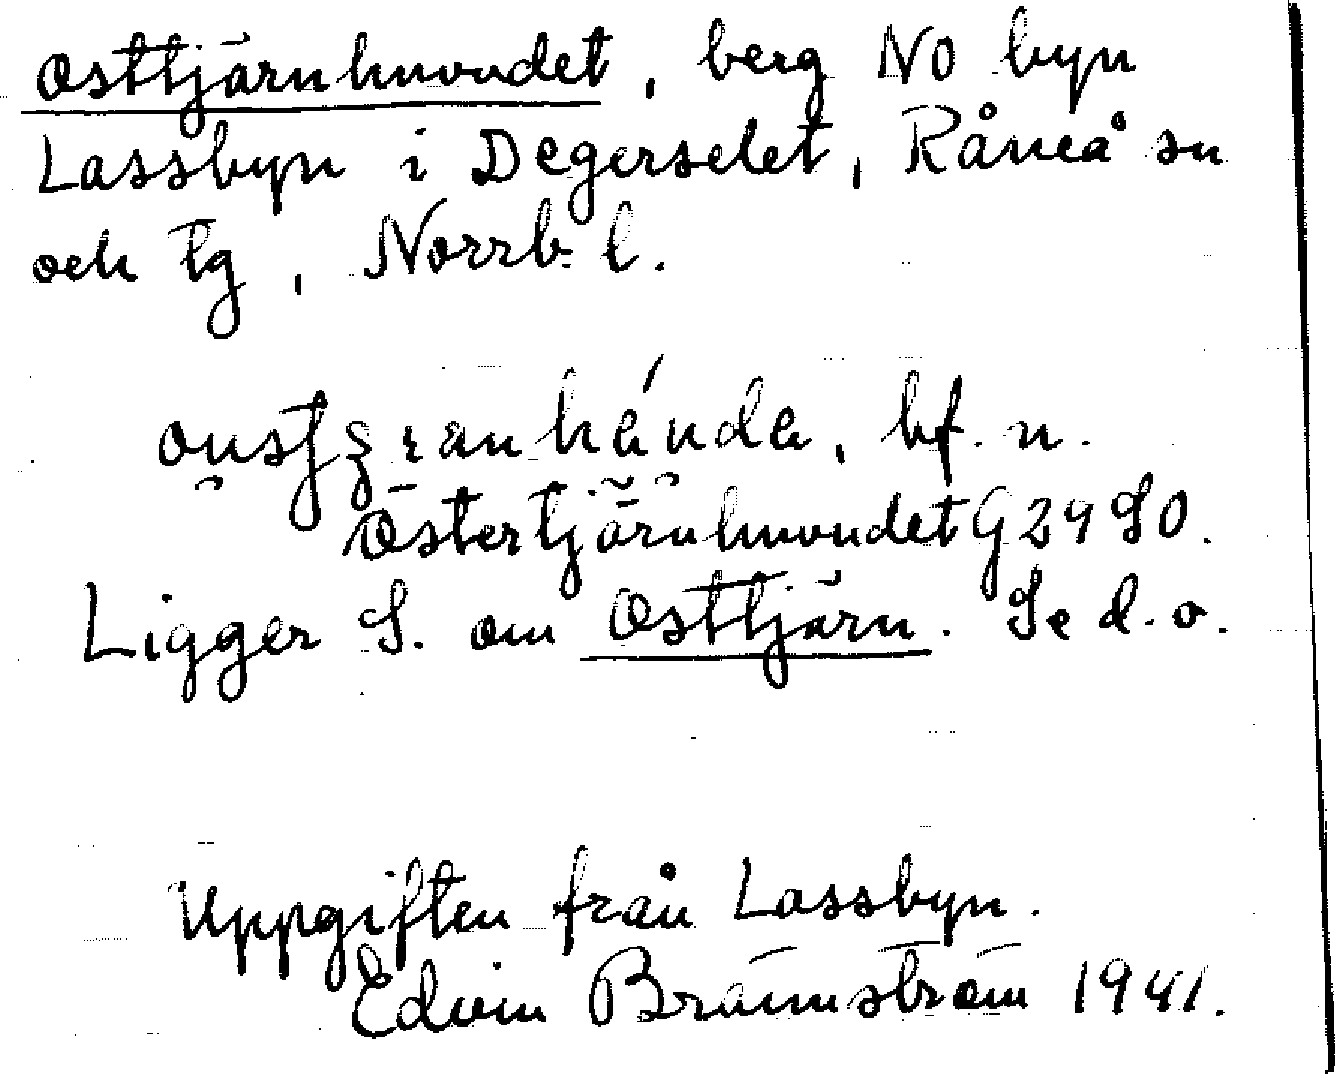 Osttjärnhuvudet, berg NO byn
Lassbyn i Degerselet, Råneå sn
och tg, Norrb. l.
bf. n.
Östertjärnhuvudet G 29 SO.
Ligger S. om Osttjärn. Se d. o.
Uppgiften från Lassbyn.
Edvin Brännström 1941.